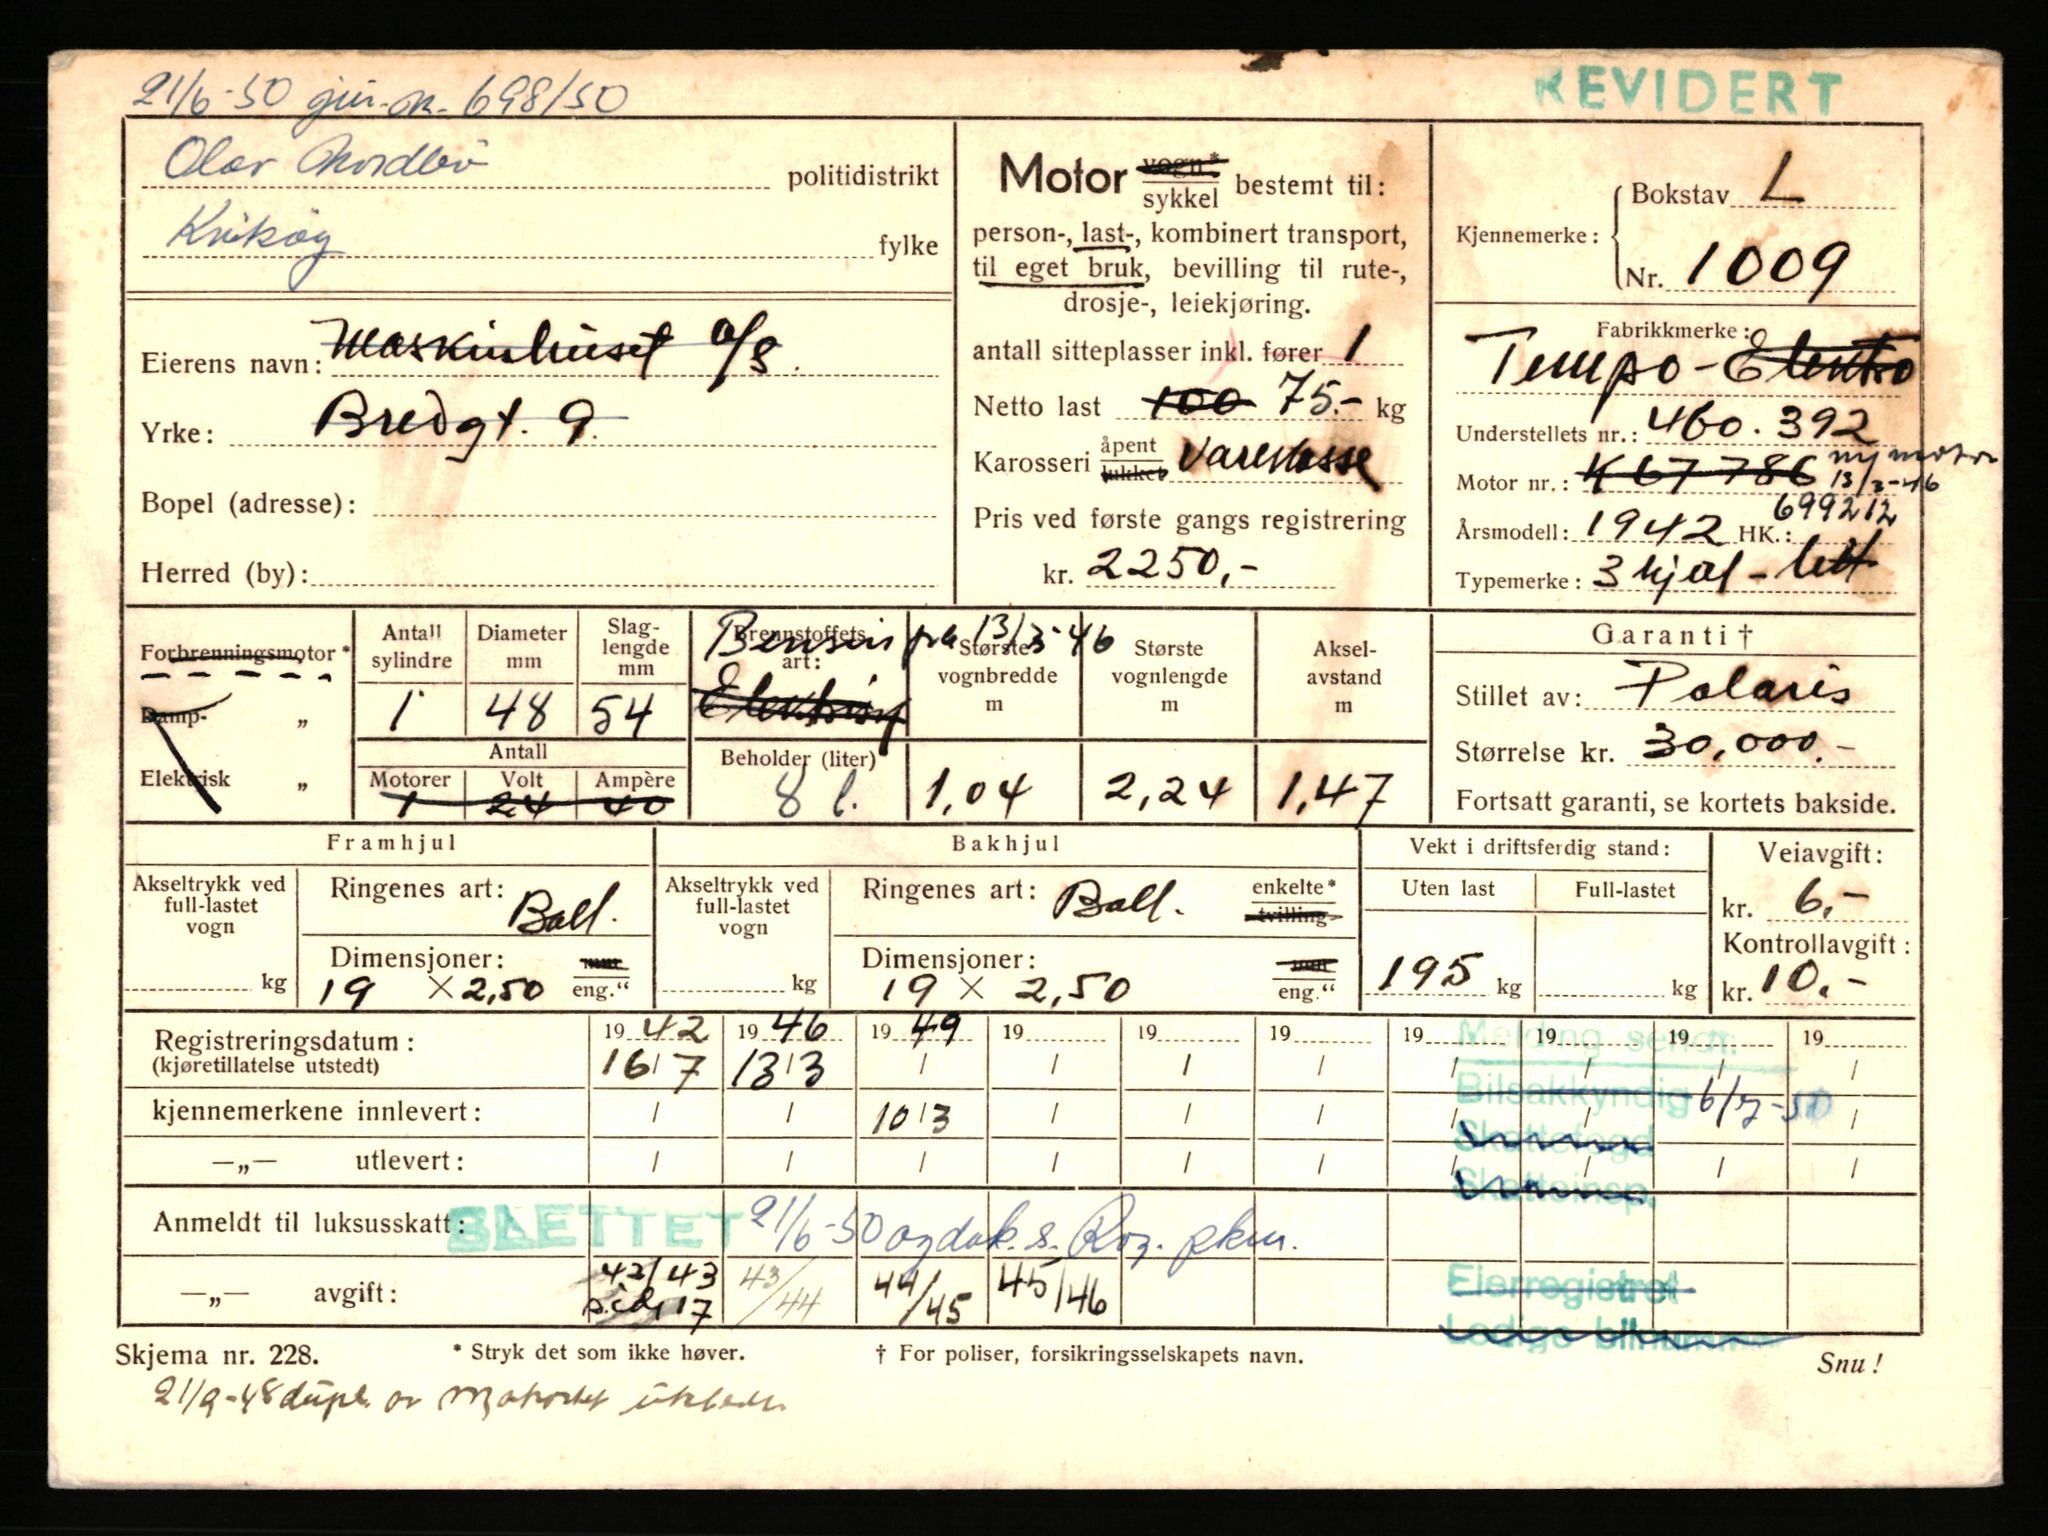 21/6-50 698/50
REVIDERT
Olav politidistrikt
fylke
Motor vogn* / sykkel bestemt til:
person-, last-, kombinert transport,
til eget bruk, bevilling til rute-,
drosje-, leiekjøring.
antall sitteplasser inkl. fører 1
Netto last 100 75.- kg
Karosseri åpent / lukket varekasse
Pris ved første gangs registrering
kr. 2250,-
Kjennemerke: Bokstav L
Nr. 1009
Fabrikkmerke:
Tempo - Elektro
Understellets nr.: 460.392
Motor nr.: K 67 786 ny motor
13/3-46
699212
Årsmodell: 1942 HK.:
Typemerke: 3 hjul - lett
Eierens navn: Maskinhuset A/S.
Yrke: Bredgt. 9.
Bopel (adresse):
Herred (by):
Forbrenningsmotor*
Damp- „
Elektrisk „
Antall sylindre 1
Diameter mm 48
Slaglengde mm 54
Antall
Motorer Volt Ampère
1 24 40
Brennstoffets art: Bensin fra 13/3-46
Elektrisk
Beholder (liter) 8 l.
Største vognbredde m 1,04
Største vognlengde m 2,24
Aksel-avstand m 1,47
Garanti †
Stillet av: Polaris
Størrelse kr. 30,000.-
Fortsatt garanti, se kortets bakside.
Framhjul
Akseltrykk ved full-lastet vogn kg
Ringenes art: Ball.
Dimensjoner: mm / eng."
19 × 2,50
Bakhjul
Akseltrykk ved full-lastet vogn kg
Ringenes art: Ball. enkelte* / tvilling
Dimensjoner: mm / eng."
19 × 2,50
Vekt i driftsferdig stand:
Uten last Full-lastet
195 kg kg
Veiavgift:
kr. 6,-
Kontrollavgift:
kr. 10.-
Registreringsdatum: 19 42 19 46 19 49 19 19 19 19 19 19 19
(kjøretillatelse utstedt) 16/7 13/3 / / / / / / / /
kjennemerkene innlevert: / / 10/3 / / / / / / /
—„— utlevert: / / / / / / / / / /
Melding sendt:
Bilsakkyndig 6/7-50
Skattefogd
Skatteinsp.
Eierregistret
Ledige bilnumre
Anmeldt til luksusskatt: SLETTET 21/6-50
—„— avgift: 42/43 43/44 44/45 45/46
sid 17
Skjema nr. 228. * Stryk det som ikke høver. † For poliser, forsikringsselskapets navn. Snu!
21/9-48 dupl. av